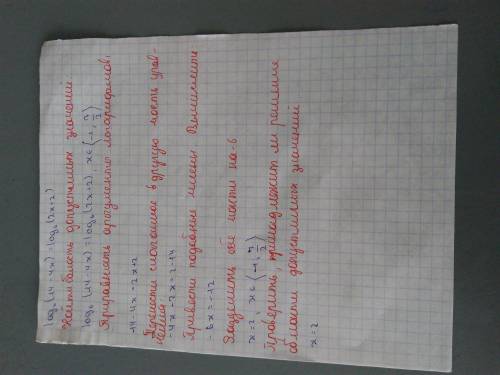 log₆(14-4x)=log₆(2x+2)
Найти область допустимых значений
log₆(14-4x)=log₆(2x+2), x∈⟨-1, 7/2⟩
Приравнять аргументы логарифмов:
14-4x=2x+2
Перенести слагаемое в другую часть урав-
нения
-4x-2x=2-14
Привести подобные члены Вычислить
-6x=-12
Разделить обе части на -6
x=2, x∈⟨-1, 7/2⟩
Проверить, принадлежит ли решение
области допустимых значений
x=2